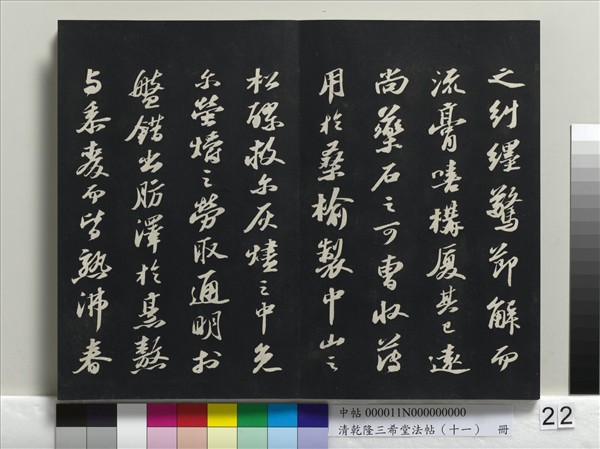 之糾纏驚節解而
流膏嘻構厦其已遠
尚藥石之可曹收薄
用於桑榆製中山之
松醪救尔灰燼之中免
尔螢爝之勞取通明於
盤錯出肪澤於烹熬
与黍麥而皆熟沸舂
中帖 000011N000000000
清乾隆三希堂法帖（十一） 冊
22